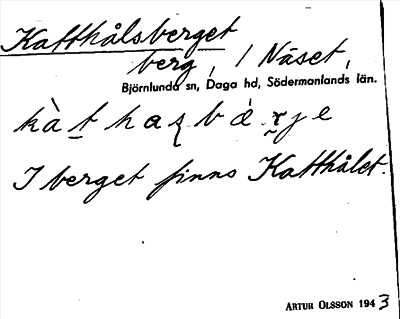 Katthålsberget
berg, / Näset,
Björnlunda sn, Daga hd, Södermanlands län.
I berget finns Katthålet.
ARTUR OLSSON 1943